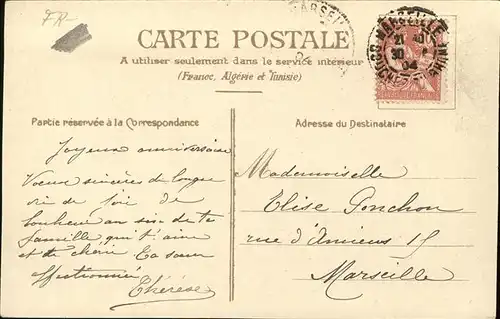 FR
MARSEILLE
CARTE POSTALE
A utiliser seulement dans le service intérieur
(France, Algérie et Tunisie)
MARSEILLE
BOUCHES DU RHONE
21
30
04
Partie réservée à la Correspondance
Adresse du Destinataire
Joyeux anniversaire
Voeux sincères de longue
vie de joie de
bonheur au sein de ta
famille qui t'aime
et te chérie Ta soeur
affectionnée
Thérèse
Mademoiselle
Elise Gonchon
rue d'Amiens 15
Marseille